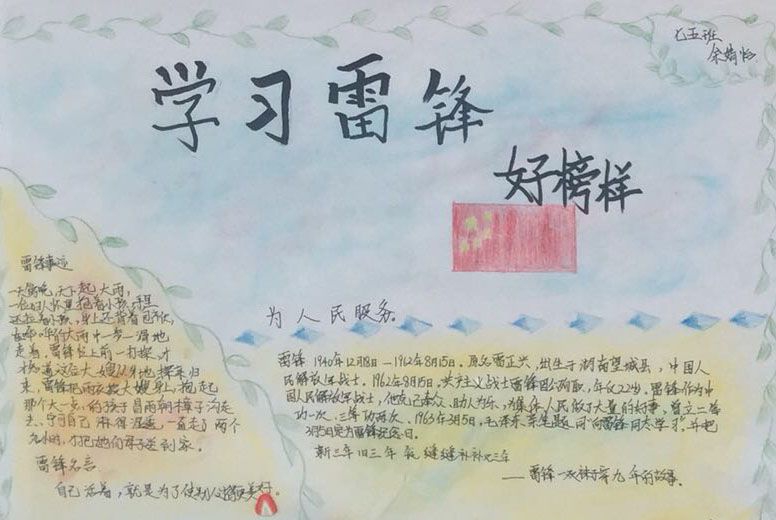 七五班
余婧怡
学习雷锋
好榜样
雷锋事迹
一天傍晚,天下起大雨,
一位妇人怀里抱着小孩,手里
还拉着小孩,身上还背着包袱,
在哗哗的大雨中一步一滑地
走着。雷锋赶上前一打探,才
知道这位大嫂从外地探亲归
来,雷锋把雨衣披大嫂身上,抱起
那个大一步的孩子冒雨朝樟子沟走
去,守自己淋得湿透,一直走了两个
九小时,才把她们母子送到家。
雷锋名言
自己活着,就是为了使别人过得更美好。
为人民服务。
雷锋 1940年12月18—1962年8月15日。原名雷正兴,出生于湖南望城县,中国人
民解放军战士,1962年8月15日。共产主义战士雷锋因公殉职,年仅22岁。雷锋作为中
国人民解放军战士,他克己奉公、助人为乐,为集体、人民做了大量的好事,曾立二等
功一次、三等功两次。1963年3月5日,毛泽东亲笔题词“向雷锋同志学习”,并把
3月5日定为雷锋纪念日。
新三年旧三年 缝缝补补又三年
——雷锋一双袜子穿九年的故事。